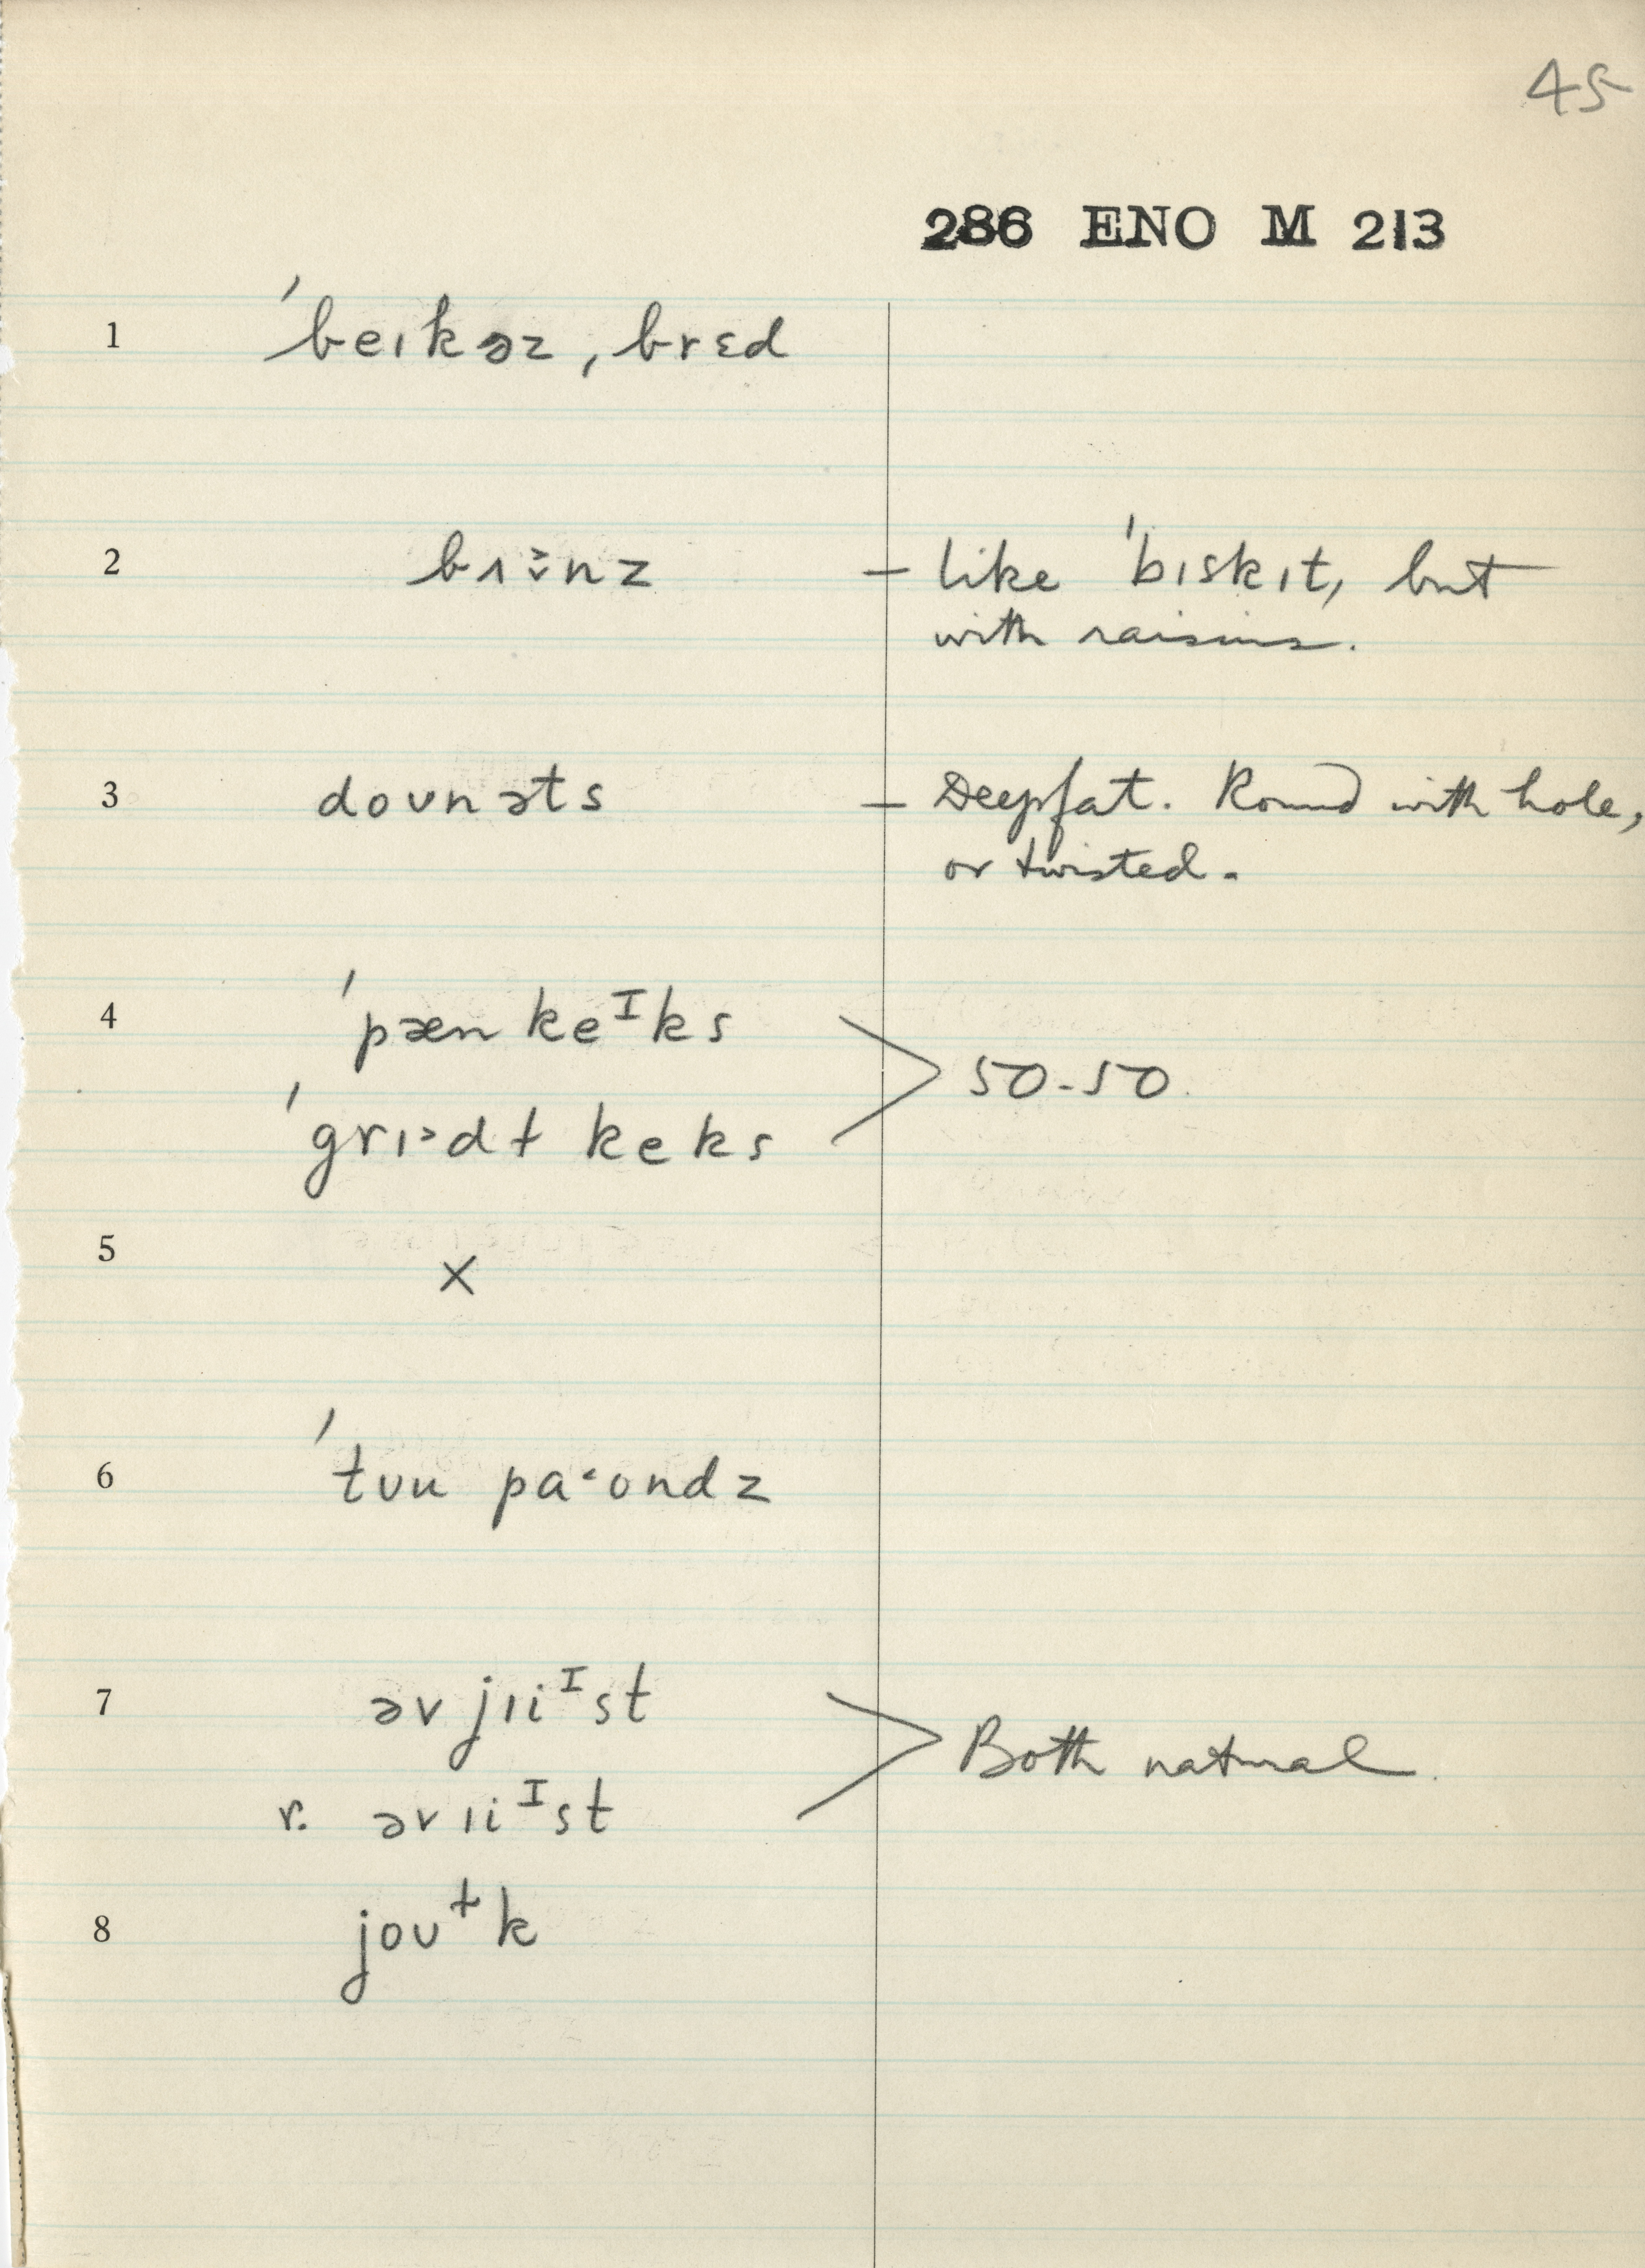 45
286 ENO M 213
1 ˈbeɪkəz, brɛd
2 bʌ n z – like ˈbɪskɪt, but
with raisins.
3 doʊnəts – Deepfat. Round with hole,
or twisted.
4 ˈpæn keᴵks
50-50.
ˈgrɪ>dɫ keks
5 ×
6 ˈtʊu pa˂ʊndz
7 əv jɪiᴵst
Both natural.
r. əv ɪiᴵst
8 joʊɫk